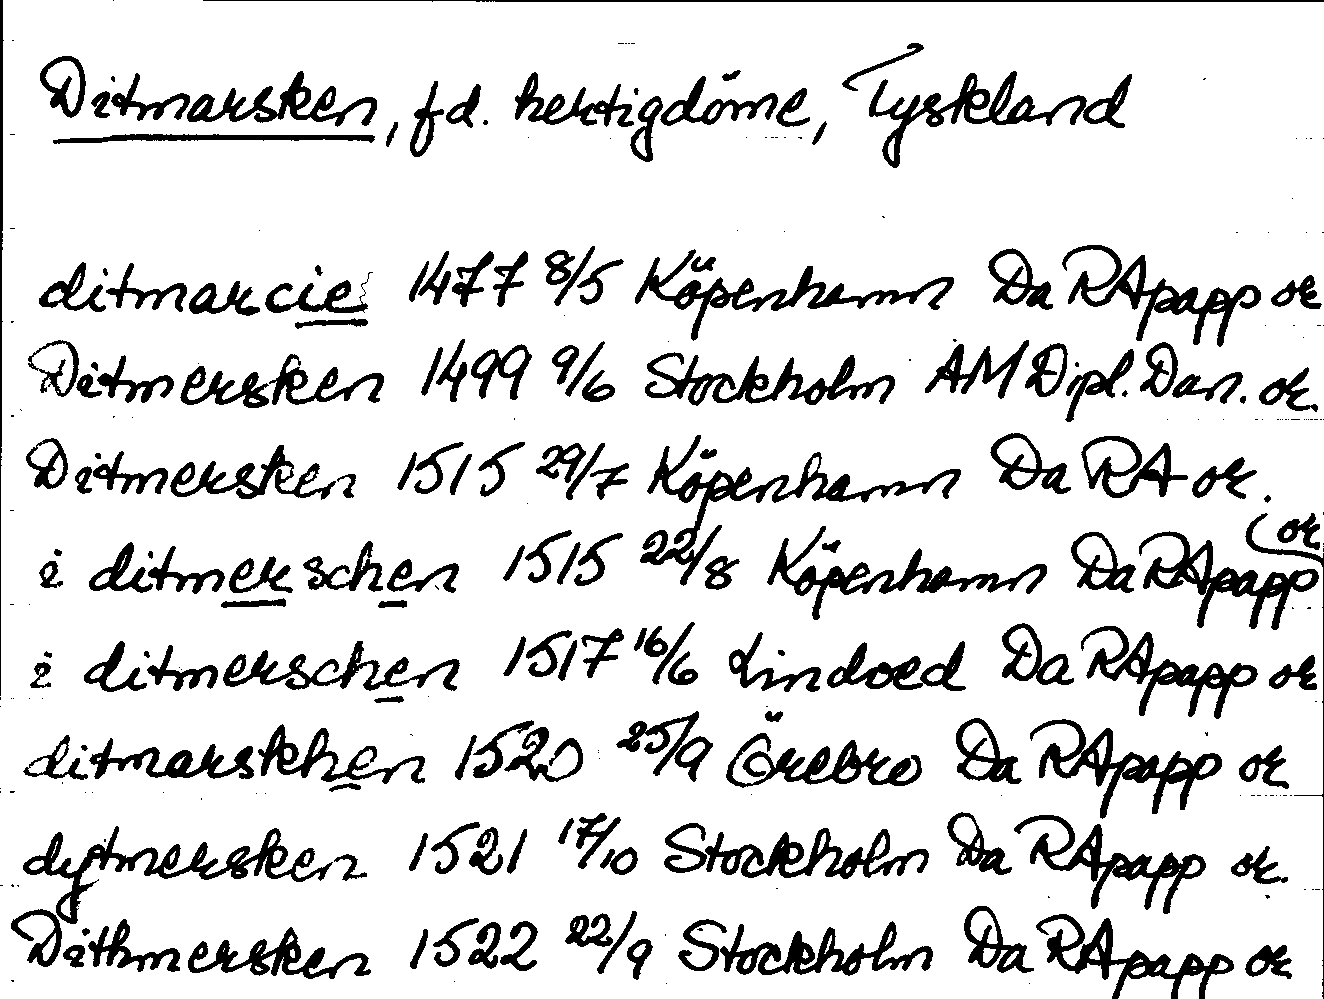 Ditmarsken, fd. hertigdöme, Tyskland
ditmarcie 1477 8/5 Köpenhamn Da RApapp or
Ditmersken 1499 9/6 Stockholm AM Dipl. Dan. or.
Ditmersken 1515 29/7 Köpenhamn Da RA or.
i ditmerschen 1515 22/8 Köpenhamn Da RApapp (or
i ditmerschen 1517 16/6 Lindoed Da RApapp or
ditmarskhen 1520 25/9 Örebro Da RApapp or
dytmersken 1521 17/10 Stockholm Da RApapp or.
Dithmersken 1522 22/9 Stockholm Da RApapp or